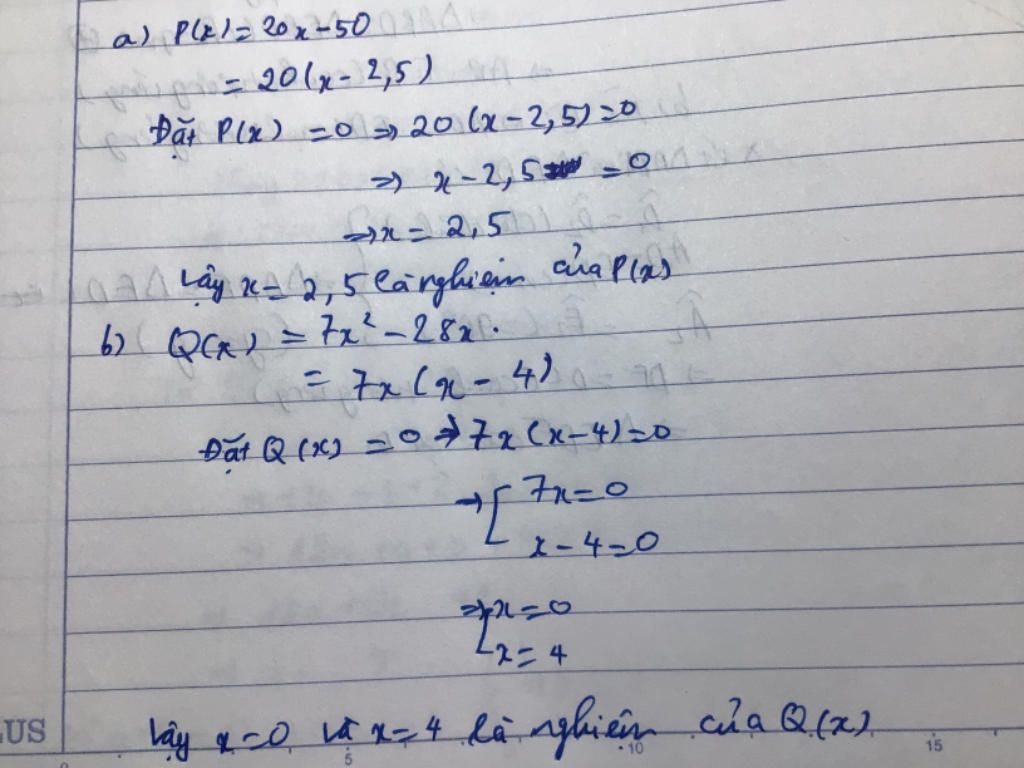 a) P(x) = 20x - 50
= 20(x - 2,5)
Đặt P(x) = 0 => 20(x - 2,5) = 0
=> x - 2,5 = 0
=> x = 2,5
Vậy x = 2,5 là nghiệm của P(x)
b) Q(x) = 7x² - 28x.
= 7x(x - 4)
Đặt Q(x) = 0 => 7x(x - 4) = 0
=> [ 7x = 0
x - 4 = 0
=> [ x = 0
x = 4
Vậy x = 0 và x = 4 là nghiệm của Q(x)
LUS 0 5 10 15